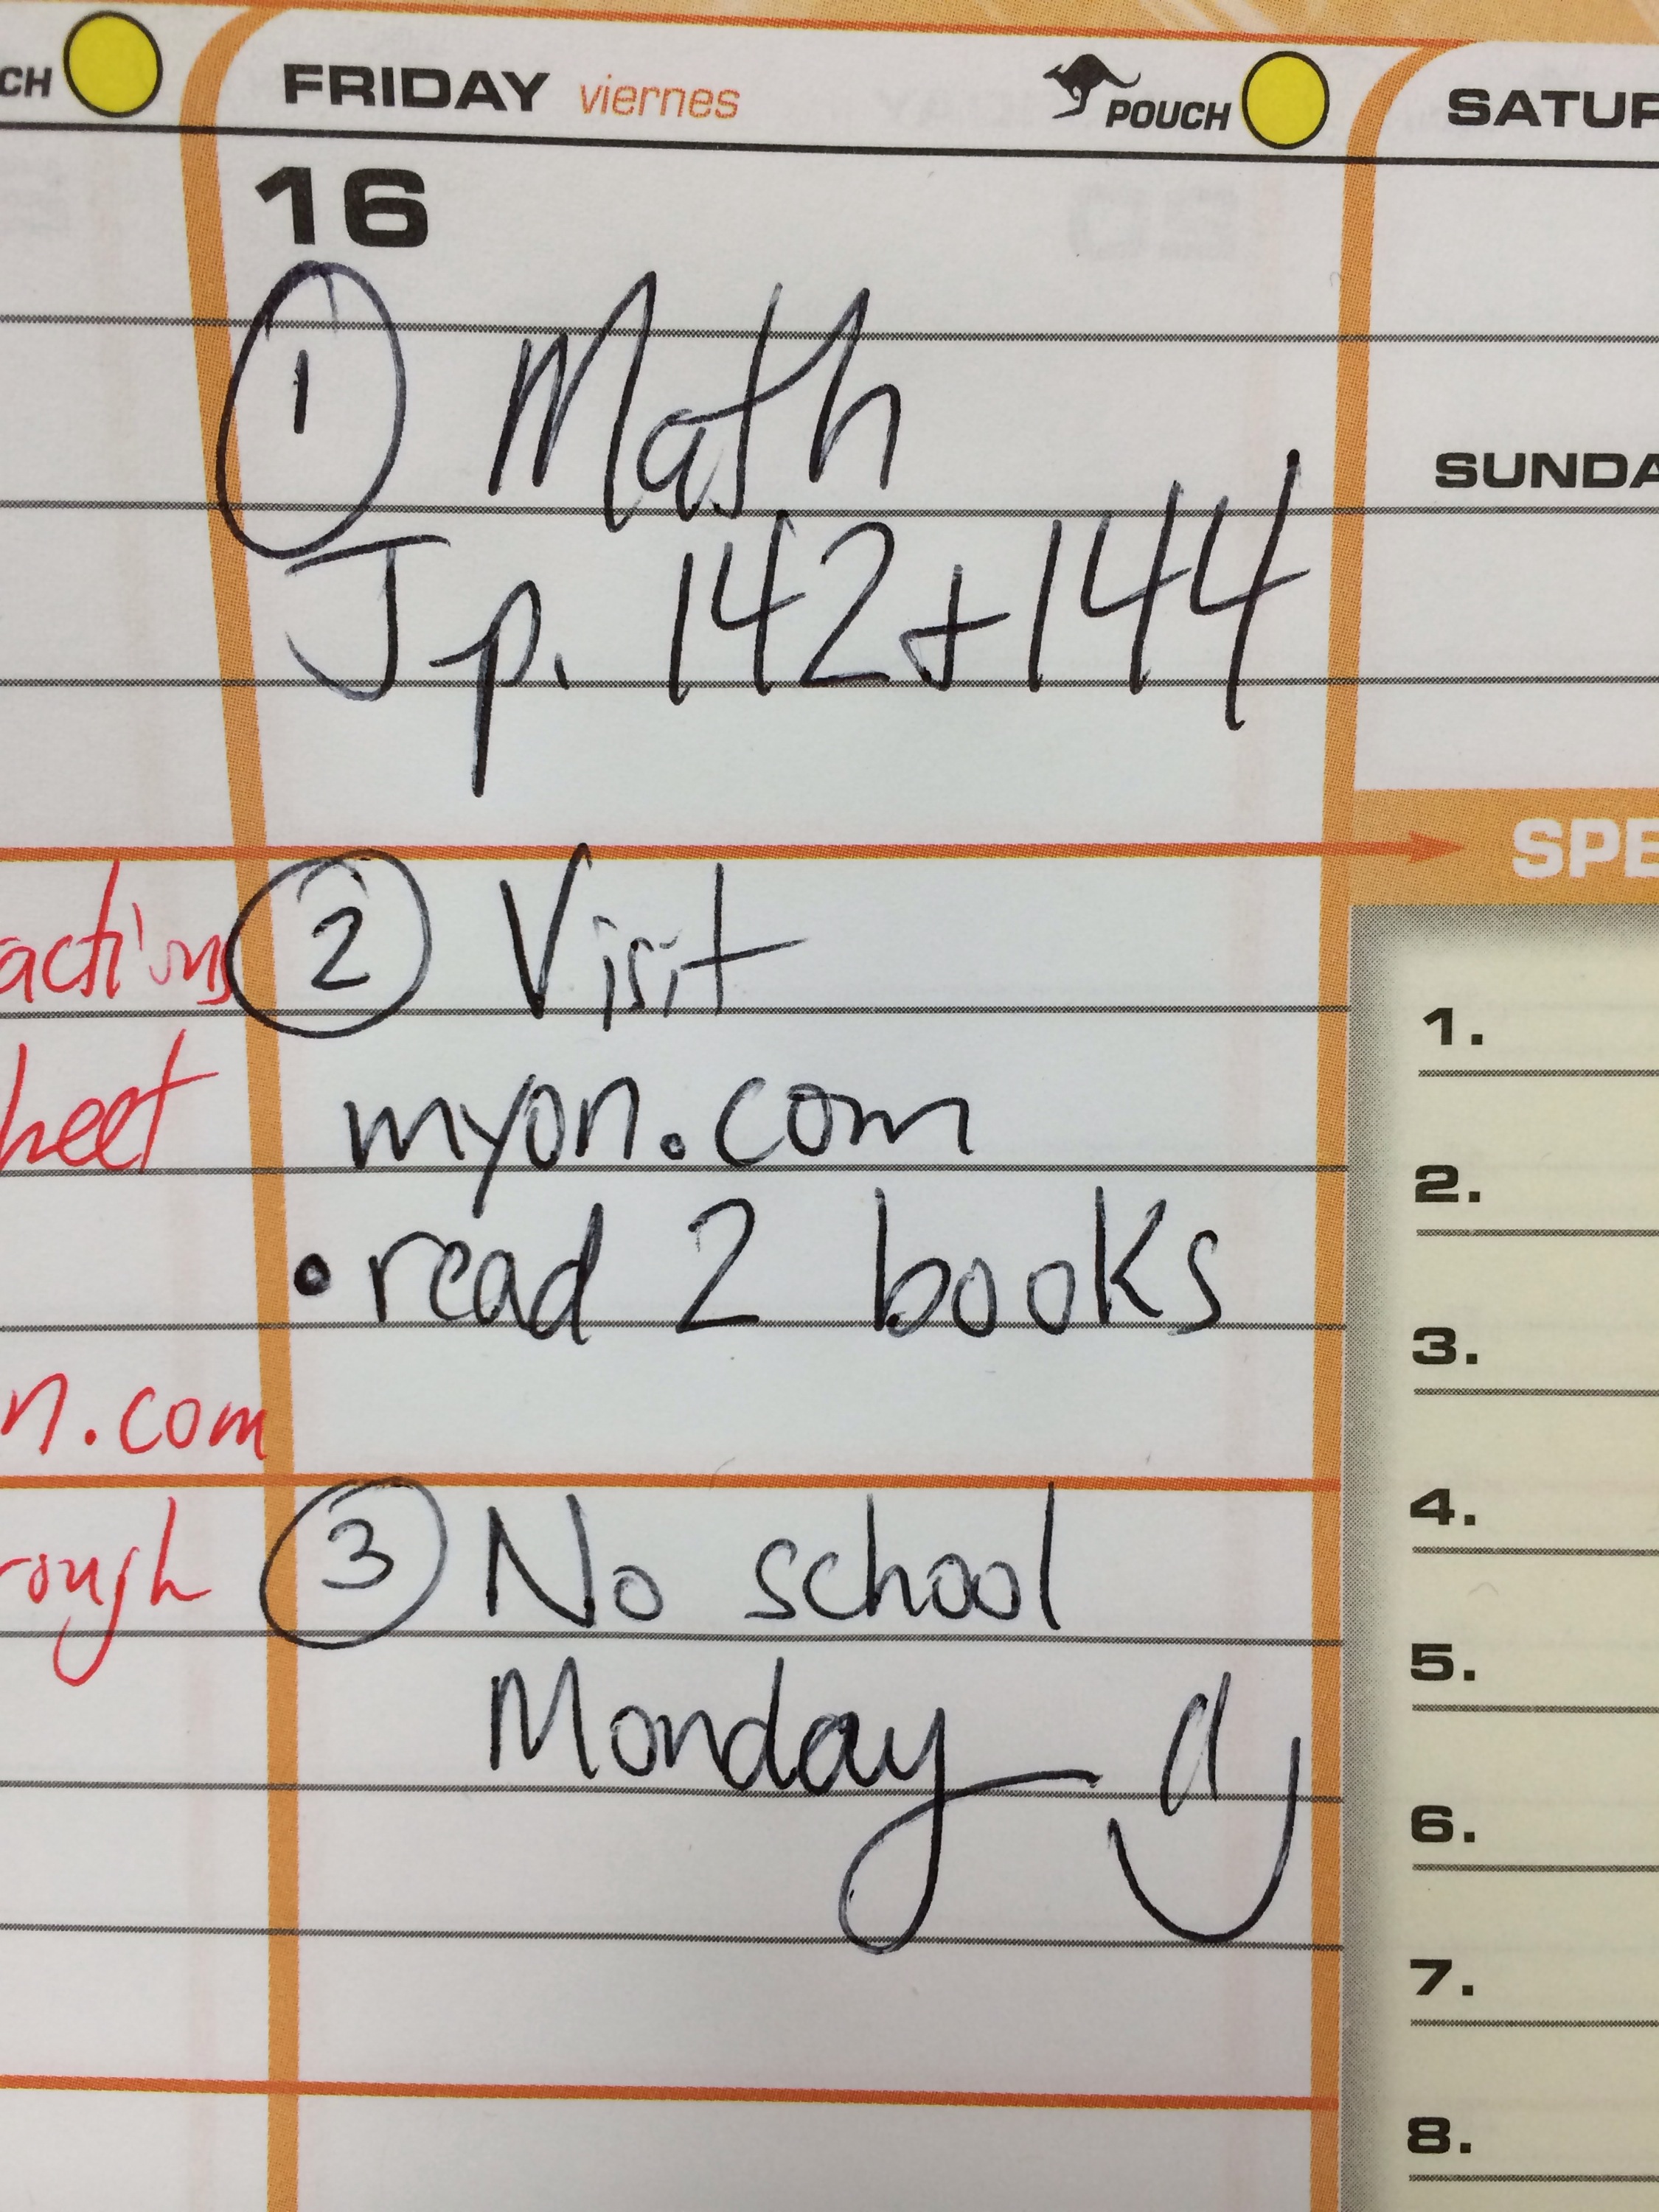 CH
FRIDAY viernes
POUCH
SATUR
16
① Math
J p. 142 + 144
SUNDA
SPE
actions
② Visit
heet
myon.com
• read 2 books
n.com
rough
③ No school
Monday
1.
2.
3.
4.
5.
6.
7.
8.